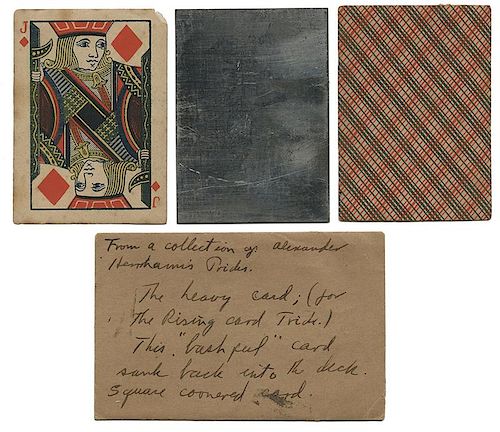 J
From a collection of Alexander
Herrmann's Tricks.
The heavy card; (for
The Rising card Trick.)
This "bashful" card
sank back into the deck.
Square cornered card.
J